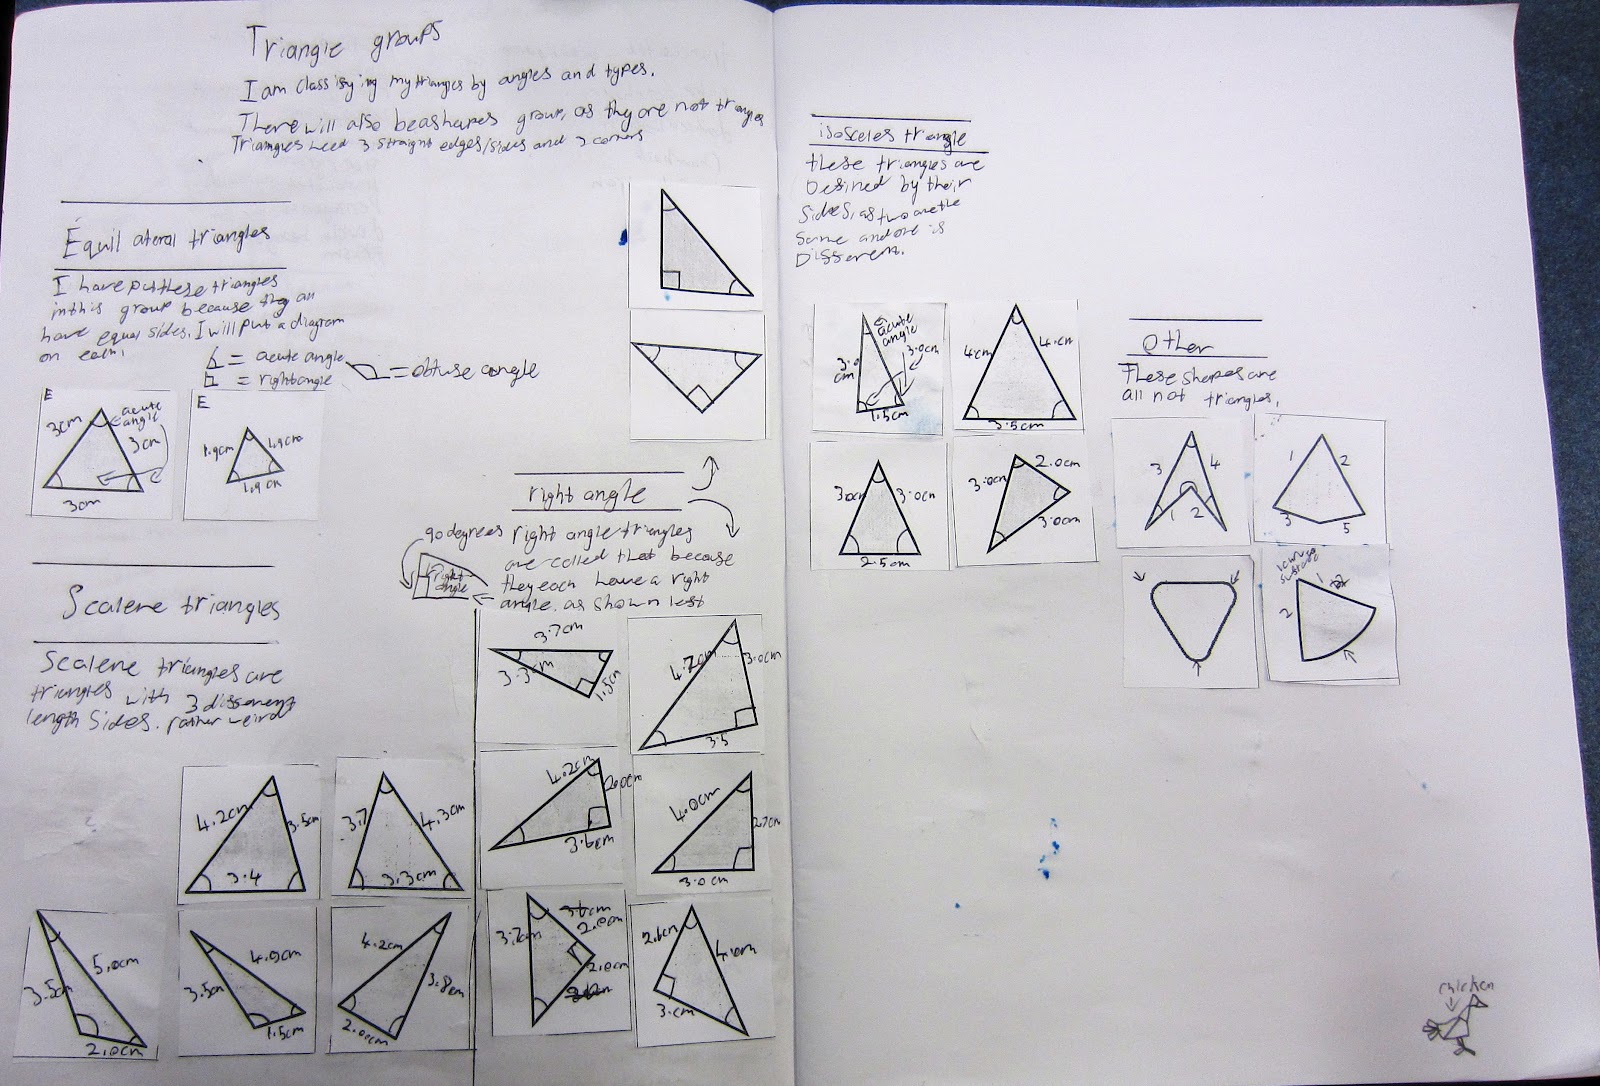 Triangle groups
I am classifying my triangles by angles and types.
There will also be a shapes group, as they are not triangles
Triangles need 3 straight edges/sides and 3 corners
Equilateral triangles
I have put these triangles
in this group because they all
have equal sides. I will put a diagram
on each.
= acute angle
= right angle
= obtuse angle
E
3cm
acute
angle
3cm
3cm
E
1.9cm
1.9cm
1.9cm
Scalene triangles
Scalene triangles are
triangles with 3 different
length sides. rather weird
4.2cm
3.5cm
3.4
3.7
4.3cm
3.3cm
3.5cm
5.0cm
2.0cm
3.5cm
4.9cm
1.5cm
4.2cm
3.8cm
2.0cm
right angle
90 degrees
right angle triangles
are called that because
they each have a right
angle. as shown left
right
angle
3.7cm
3.3cm
1.5cm
4.7cm
3.0cm
3.5
4.2cm
2.0cm
3.6cm
4.0cm
2.7cm
3.0cm
3.2cm
2.0cm
2.0cm
2.6cm
4.0cm
3.cm
isosceles triangle
these triangles are
Defined by their
sides, as two are the
same and one is
Different.
acute
angle
3.0
cm
3.0cm
1.5cm
4cm
4.cm
3.5cm
3.0cm
3.0cm
2.5cm
3.0cm
2.0cm
3.0cm
Other
These shapes are
all not triangles.
3
4
1
2
1
2
3
5
1
2
chicken